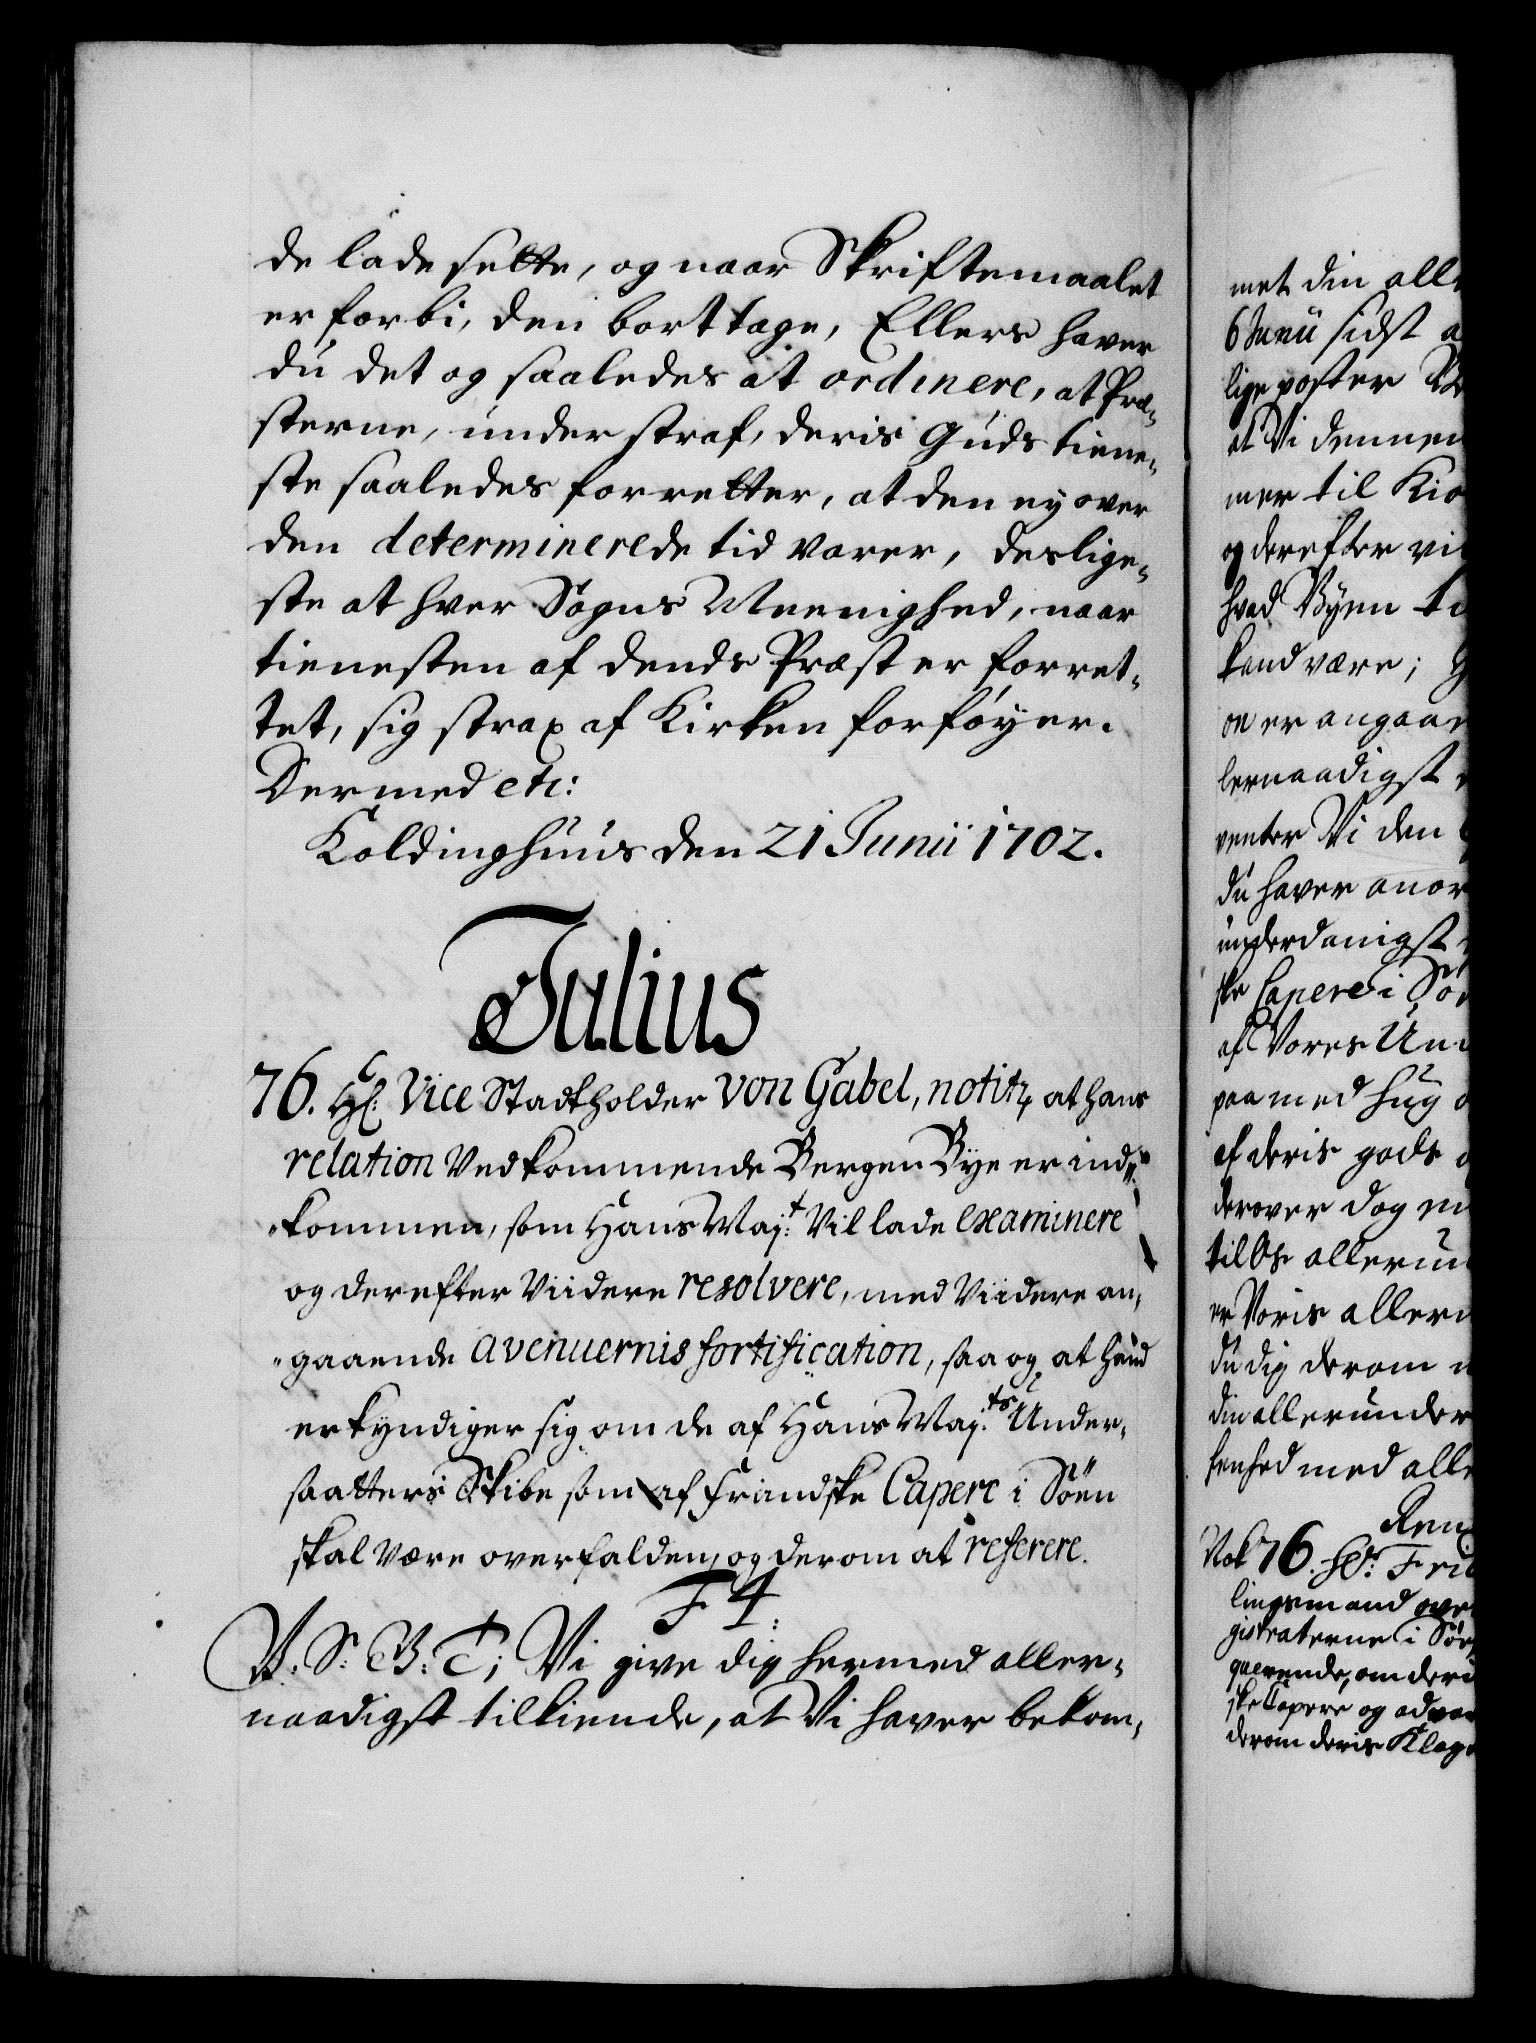 de lade sette, og naar Skriftemaalet
er forbi, den borttage, Ellers haver
du det og saaledes at ordinere, at Præ-
sterne, under straf, deris Guds tiene-
ste saaledes forretter, at den ey over
den determinerede tid varer, deslige-
ste at hver Sogns Meenighed, naar
tienesten af dends Præst er forret-
tet, sig strax af Kirken forföyer.
Dermed etc:
Koldinghuus den 21 Junii 1702.
Julius
76. Hr: Vice Stadtholder von Gabel, notitz, at hans
relation Vedkommende Bergen Bye er ind-
kommen, som Hans May:t Vil lade examinere
og derefter Viidere resolvere, med Viidere an-
gaaende avenuernis fortification, saa og at hand
erkyndiger sig om de af Hans May:ts Under-
saatters Skibe som af Frandske Capere i Söen
skal være overfalden, og derom at referere.
F 4.
V. S: B: T; Vi give dig hermed aller-
naadigst tilkiende, at Vi haver bekom-
met din alle
6 Junii sidst a
lige poster
at Vi dennem
mer til Kio
og derefter vi
hvad Byen
kand være;
on er angaae
lernaadigst
venter Vi den
du haver anor
underdanigst
ske Capere i Sö
af Vores Un
paa med hug
af deris gods
derover dog
til Os allerun
er Voris allern
du dig derom
din allerunder
henhed med alle
Ren
Nok 76. Hr: Frid
lingsmand over
gistraterne i
qverende, om deri
ske Capere og
derom deris Klage